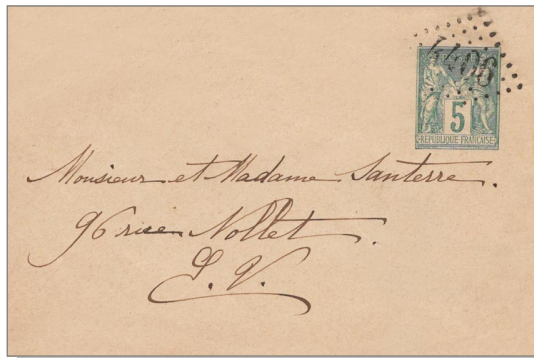 5
RÉPUBLIQUE FRANÇAISE
Monsieur et Madame Santerre.
96 rue Nollet.
E. V.